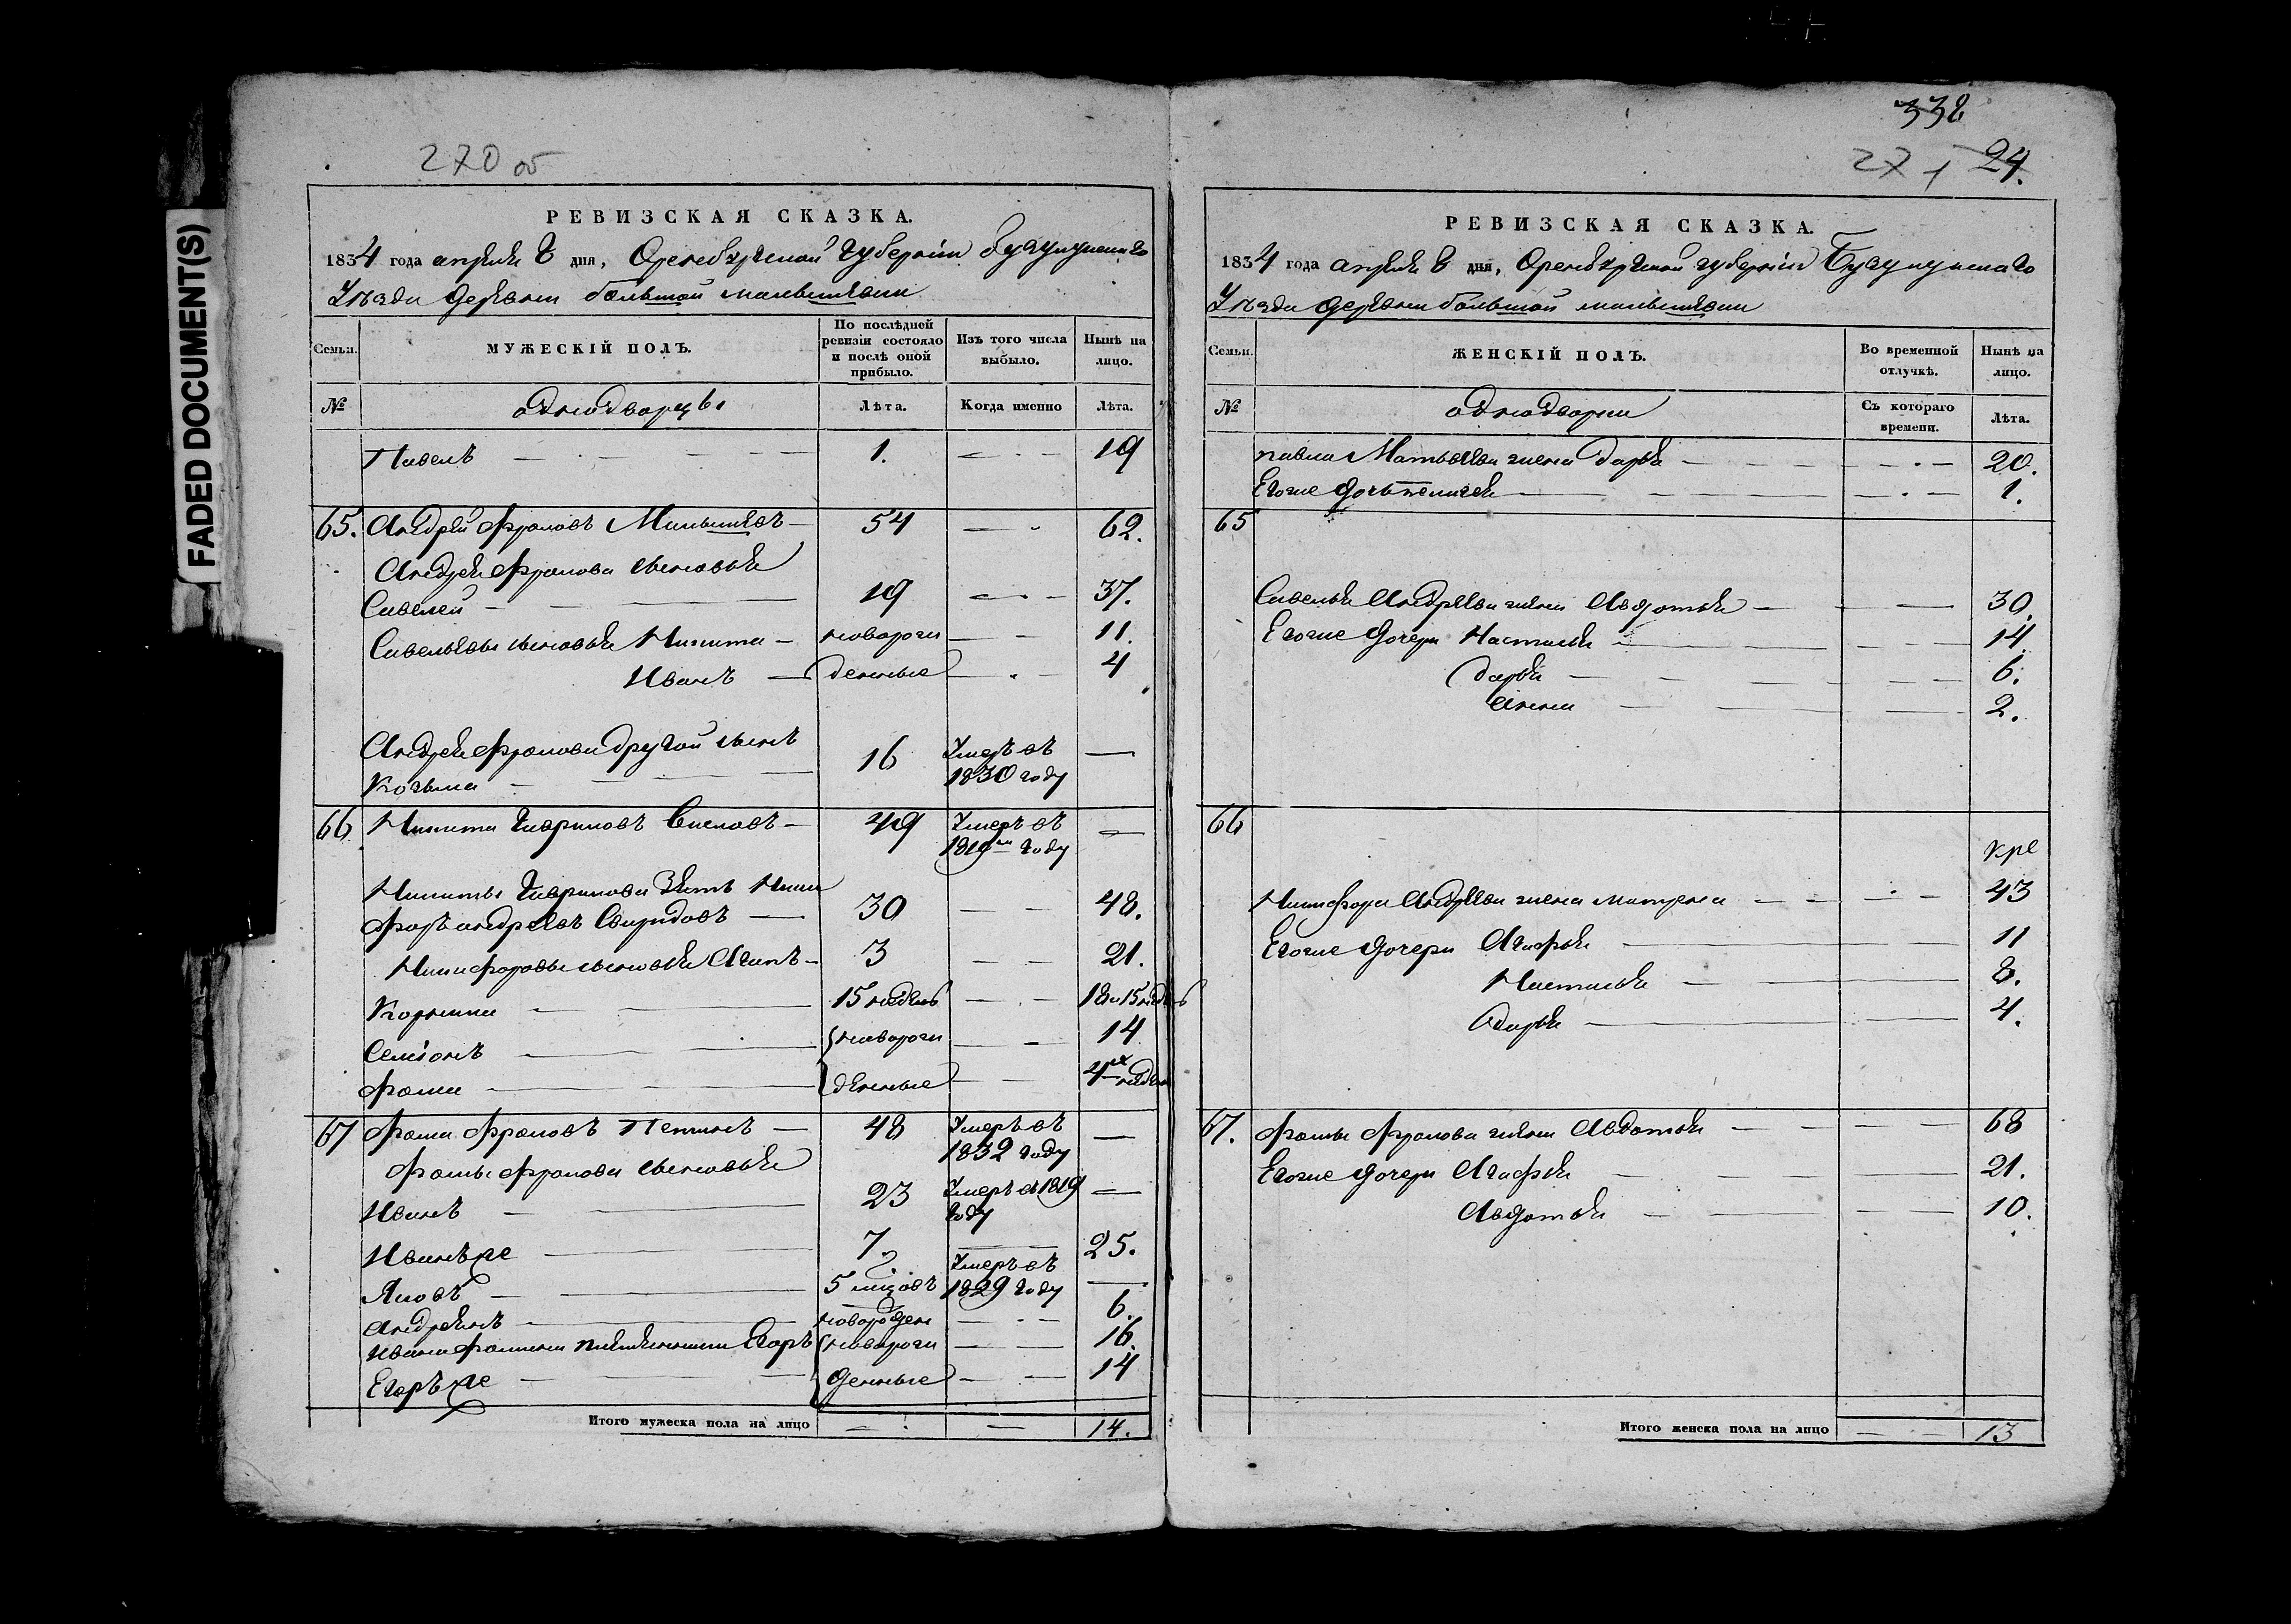 FADED DOCUMENT(S)
270 об
РЕВИЗСКАЯ СКАЗКА.
1834 года апреля 8 дня, Оренбургской губернiи Бузулукскаго
Уезда деревни большой малышевки
Семьи.
МУЖЕСКІЙ ПОЛЪ.
По послѣдней ревизіи состояло и послѣ оной прибыло.
Изъ того числа выбыло.
Нынѣ на лицо.
№
однодворцы
Лѣта.
Когда именно
Лѣта.
Павелъ 1. 19
65. Андрей Фроловъ Малышевъ 54 62.
Андрея Фролова сыновья
Савелей 19 37.
Савельевы сыновья Никита новорож 11.
Иванъ денные 4
Андрея Фролова другой сынъ
Козьма 16 Умеръ въ 1830 году
66 Никита Гавриловъ 49 Умеръ въ 1819м году
Никиты Гаврилова Зять Ники
форъ андреевъ Свиридовъ 30 48.
Никифоровы сыновья Агапъ 3 21.
Корнила 15 недель 18 и 15 недель
Семiонъ новорож 14
Фома денные 4ех недель
67 Фома Фроловъ 48 Умеръ въ 1832 году
Фомы Фролова сыновья
Иванъ 23 Умеръ в 1819 году
Иванъ же 7. 25.
Яковъ 5 Умеръ въ 1829 году
Андреянъ новорожден 6.
Ивана Фомина Егоръ новорож 16.
Егоръ же денные 14
Итого мужеска пола на лицо 14.
338
271 24.
РЕВИЗСКАЯ СКАЗКА.
1834 года апреля 8 дня, Оренбургской губернiи Бузулукскаго
Уезда деревни большой малышевки
Семьи.
ЖЕНСКІЙ ПОЛЪ.
Во временной отлучкѣ.
Нынѣ на лицо.
№
однодворки
Съ котораго времени.
Лѣта.
павла Матвеева жена Дарья 20.
Егоже дочь пелагея 1.
65
Савелья Андреева жена Авдотья 30.
Егоже дочери Настасья 14
Дарья 6.
Анна 2.
66
Никифора Андреева жена матрена 43
Егоже дочери Агафья 11
Настасья 8.
Дарья 4.
67. Фомы Фролова жена Авдотья 68
Егоже дочери Агафья 21.
Авдотья 10.
Итого женска пола на лицо 13